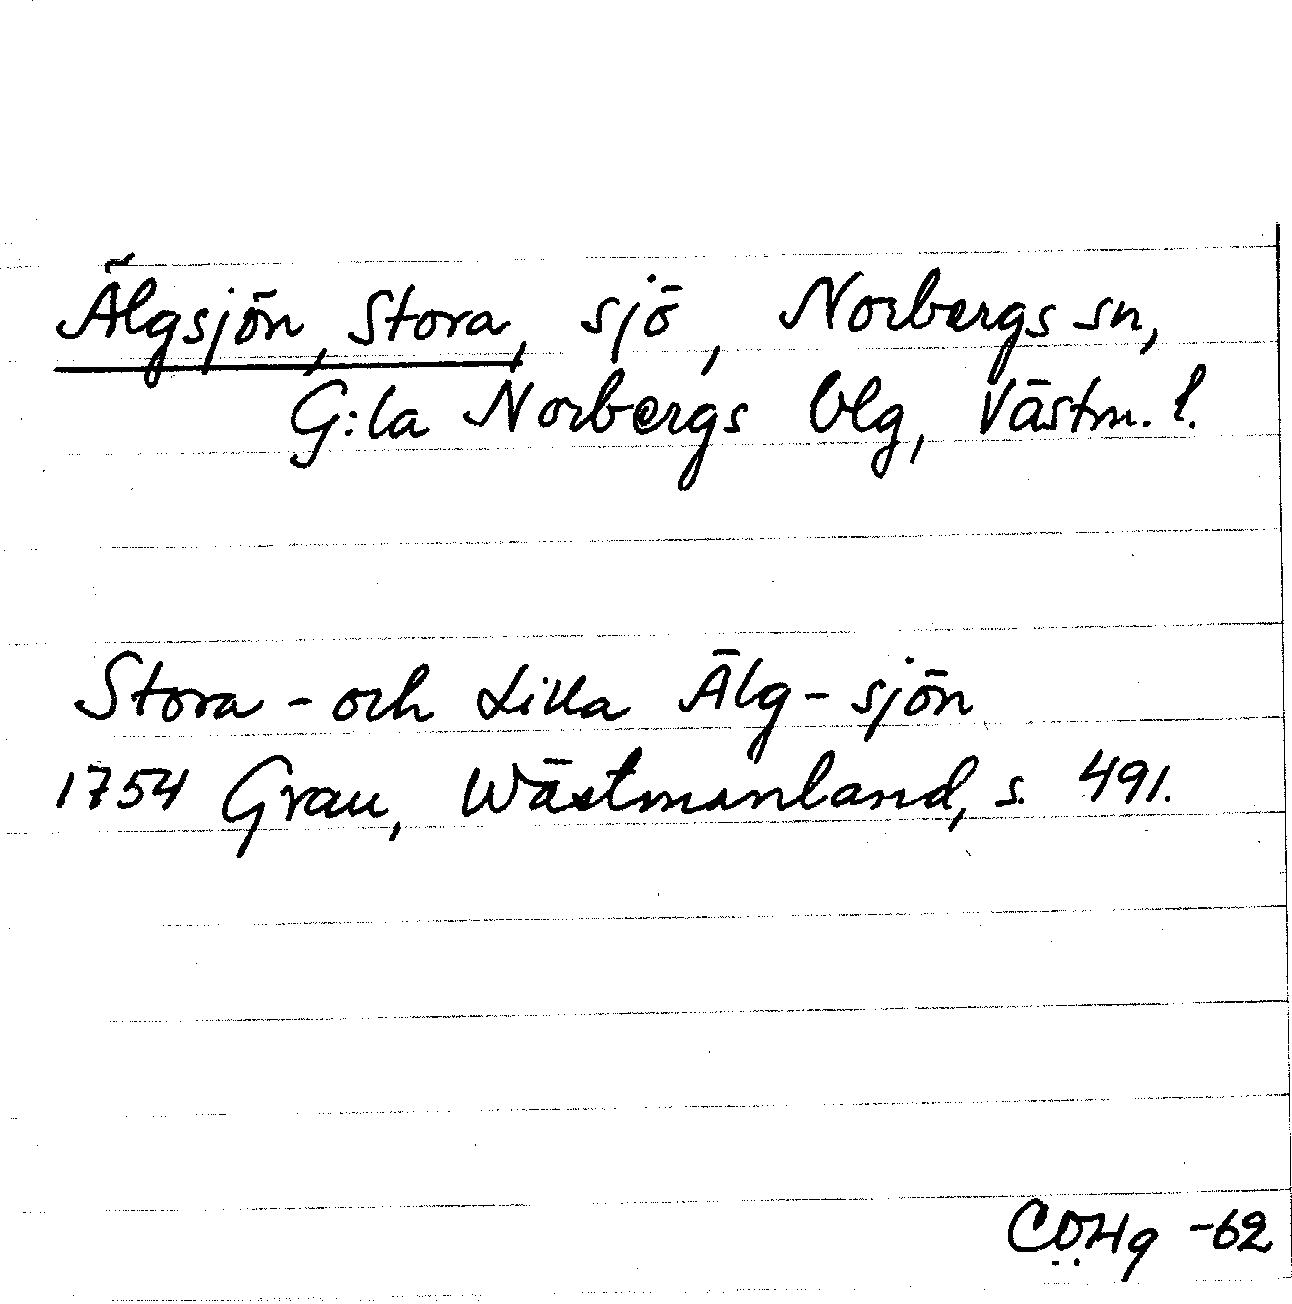 Älgsjön, Stora, sjö, Norbergs sn,
G:la Norbergs blg, Västm. l.
Stora - och Lilla Älg - sjön
1754 Grau, Wästmanland, s. 491.
CÖHg -62